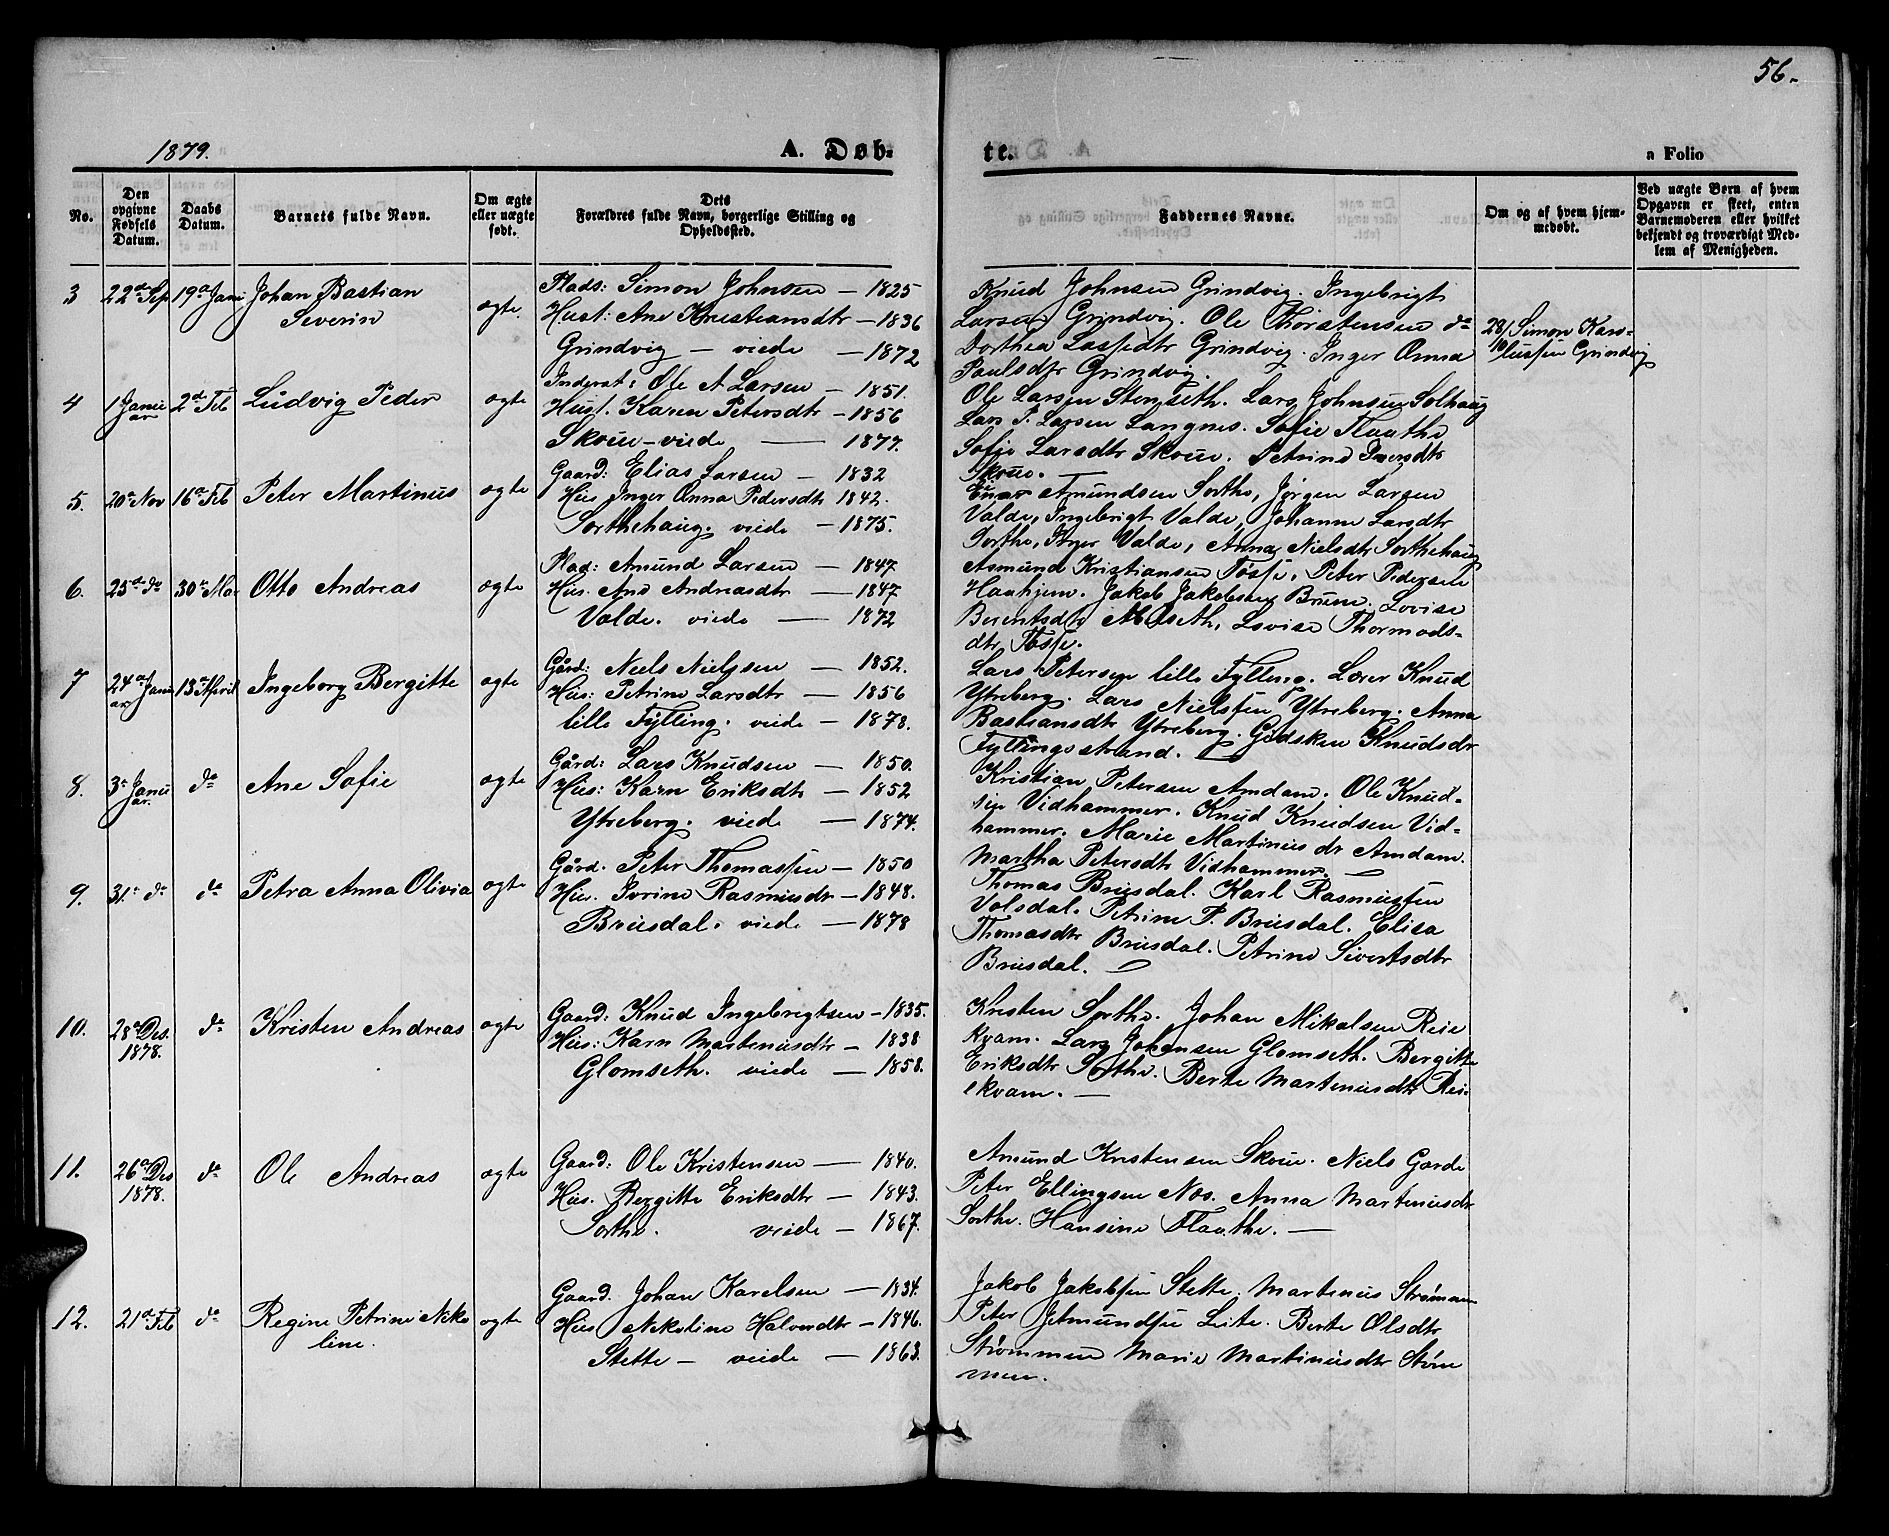 56.
1879.
A. Døb-
te.
a Folio
No.
Den opgivne Fødsels Datum.
Daabs Datum.
Barnets fulde Navn.
Om ægte eller uægte født.
Dets Forældres fulde Navn, borgerlige Stilling og Opholdssted.
Faddernes Navne.
Om og af hvem hjemmedøbt.
Ved uægte Børn af hvem Opgaven er skeet, enten Barnemoderen eller hvilket bekjendt og troværdigt Medlem af Menigheden.
3 22de Sep 19de Janu Johan Bastian Severin ægte
Plads: Simon Johnsen — 1825
Hust: Ane Kristiansdtr — 1836
Grindvig — viede — 1872
Knud Johnsen Grindvig. Ingebrigt
Larsen Grindvig. Ole Thorstensen do
Dorthea Lassedtr Grindvig. Inger Anna
Paulsdtr Grindvig.
28/10 Simon Grindvig
4 1 Januar 2de Feb Ludvig Peder ægte
Inderst: Ole A Larsen — 1851.
Hust. Karen Petersdtr — 1856
Skoue — viede — 1877.
Ole Larsen Stenseth. Lars Johnsen Solhaug
Lars P. Larsen Langnes. Sofie Flaathe
Sofie Larsdtr Skoue. Petrine Iversdtr
Skoue. —
5. 20de Nov 16de Feb Peter Martinus ægte
Gaard: Elias Larsen — 1832
Hus Inger Anna Pedersdtr 1842.
Sorthehaug. viede — 1875.
Einar Amundsen Sorthe, Jørgen Larsen
Valde, Ingebrigt Valde, Johanne Larsdtr
Sorthe, Inger Valde, Anna Nielsdtr Sorthehaug
6. 25de do 30te Mar Otto Andreas ægte
Plad: Amund Larsen — 1847
Hus. Ane Andreasdtr — 1847
Valde. viede — 1872
Asmund Kristiansen Tøsse, Peter Pedersen
Haahjem. Jakob Jakobsen Brune. Lovise
Berentsdtr Alseth, Lovise Thormods-
dtr Tøsse.
7 24de Januar 13de April Ingeborg Bergitte ægte
Gård: Niels Nielssen — 1852.
Hus: Petrine Larsdtr — 1856
lille Fylling. viede — 1878.
Lars Petersen lille Fylling. Lærer Knud
Ytreberg. Lars Nielssen Ytreberg. Anna
Bastiansdtr Ytreberg. Gidsken Knudsdtr
Fyllingsstrand. —
8. 3de Januar. do Ane Sofie ægte
Gård: Lars Knudsen — 1850.
Hus: Karn Eriksdtr — 1852
Ytreberg. viede — 1874.
Kristian Petersen Amdam. Ole Knud-
sen Vidhammer. Knud Knudsen Vid-
hammer. Marie Martinusdtr Amdam.
Martha Petersdtr Vidhammer. —
9. 31te do do Petra Anna Olivia ægte
Gård. Peter Thomassen — 1850
Hus. Ivrine Rasmusdtr — 1848.
Brusdal. viede — 1878
Thomas Brusdal. Karl Rasmussen
Volsdal. Petrine P. Brusdal. Elisa
Thomasdtr Brusdal. Petrine Sivertsdtr
Brusdal. —
10. 28de Des. 1878. do Kristen Andreas ægte
Gaard: Knud Ingebrigtsen — 1835.
Hus: Karn Martinusdtr — 1838
Glomseth. viede — 1858.
Kristen Sorthe. Johan Mikalsen Reie
kvam. Lars Johansen Glomseth. Bergitte
Eriksdtr Sorthe. Berte Martinusdtr Rei-
ekvam. —
11. 26de Des 1878. do Ole Andreas ægte
Gaard: Ole Kristensen — 1840.
Hus. Bergitte Eriksdtr — 1843.
Sorthe. viede — 1867.
Amund Kristensen Skoue. Niels Garde
Peter Ellingsen Nos. Anna Martinusdtr
Sorthe. Hansine Flaathe. —
12. 21de Feb do Regine Petrine Niko line. ægte
Gaard. Johan Karelsen — 1834.
Hus Nikoline Halvordtr — 1846.
Stette — viede — 1863.
Jakob Jakobsen Stette. Martinus Strømmen
Peter Jetmundsen Leite. Berte Olsdtr
Strømmen Marie Martinusdtr Strøm
men.